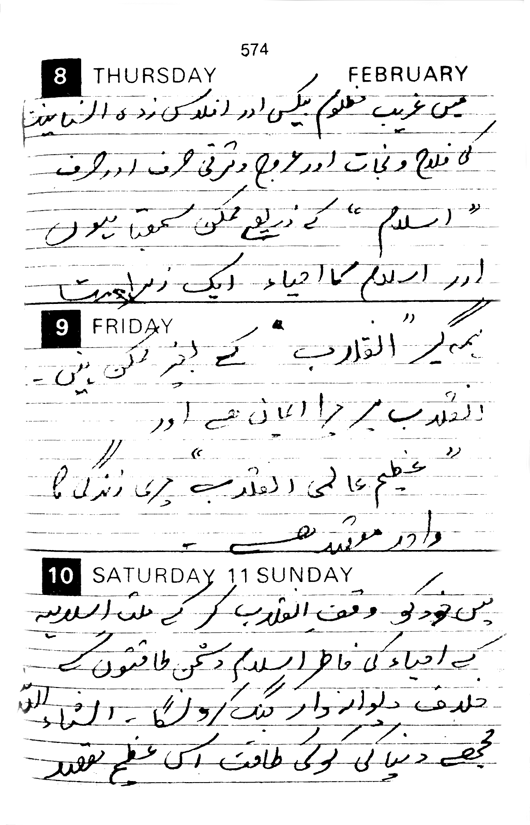 574
8 THURSDAY FEBRUARY
میں غریب مظلوم بیکس اور افلاس زدہ انسانیت
کی فلاح و نجات اور عروج و ترقی صرف اور صرف
"اسلام" کے ذریعے ممکن سمجھتا ہوں
اور اسلام کا احیاء ایک زبردست
9 FRIDAY
ہمہ گیر "انقلاب" کے بغیر ممکن نہیں ۔
انقلاب میرا ایمان ہے اور
"عظیم عالمی انقلاب" میری زندگی کا
واحد مقصد ہے ۔
10 SATURDAY 11 SUNDAY
میں خود کو وقف انقلاب کر کے ملت اسلامیہ
کے احیاء کی خاطر اسلام دشمن طاقتوں کے
خلاف دیوانہ وار جنگ کرونگا ۔ انشاء اللہ
مجھے دنیا کی کوئی طاقت اس عظیم مقصد